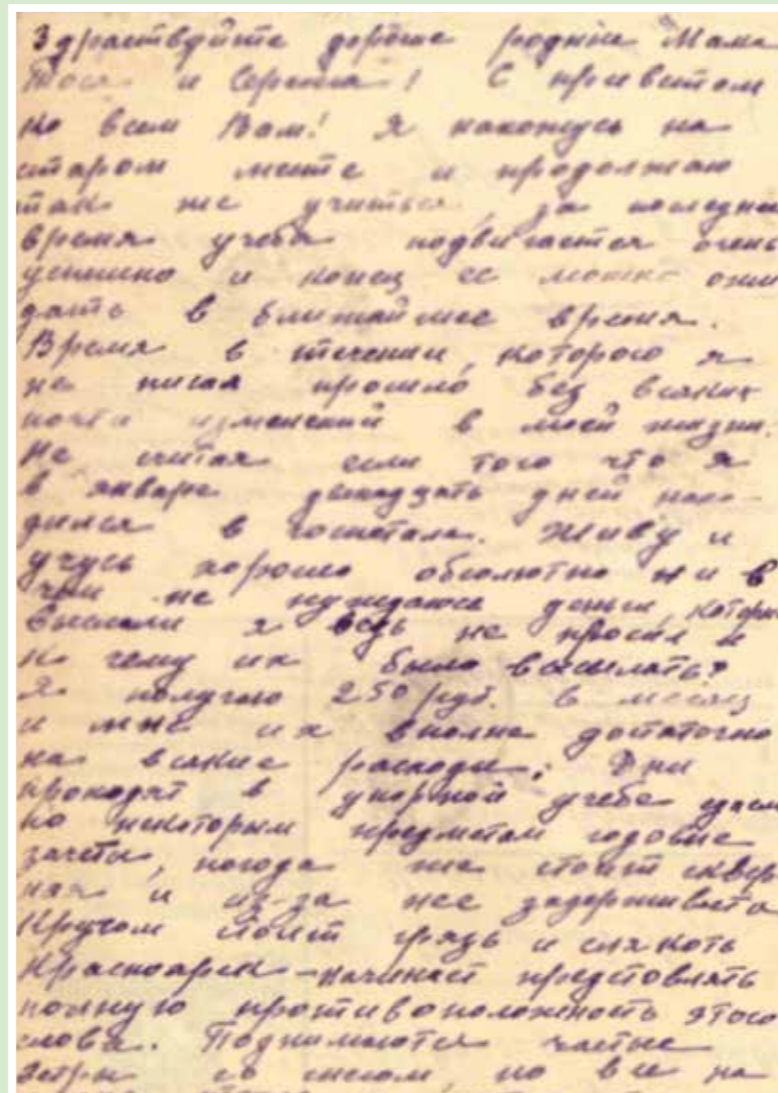 Здраствуйте дорогие родные Мама
Тося и Сережа! С приветом
ко всем Вам! Я нахожусь на
старом месте и продолжаю
так же учиться, за последнее
время учеба подвигается очень
успешно и конец ее можно ожи
дать в ближайшее время.
Время в течении, которого я
не писал прошло без всяких
почти изменений в моей жизни.
Не считая если того что я
в январе двенадцать дней нахо-
дился в госпитале. Живу и
учусь хорошо обсолютно ни в
чем не нуждаюсь деньги, которые
выслали я ведь не просил и
к чему их было высылать?
Я получаю 250 руб. в месяц
и мне их вполне достаточно
на всякие расходы; Дни
проходят в упорной учебе сдаем
по некоторым предметам годовые
зачеты, погода же стоит сквер
ная и из-за нее
Кругом стоит грязь и слякоть
Красноярск-начинает предстовлять
полную противоположность этого
слова. Поднимаются частые
со снегом, но все на